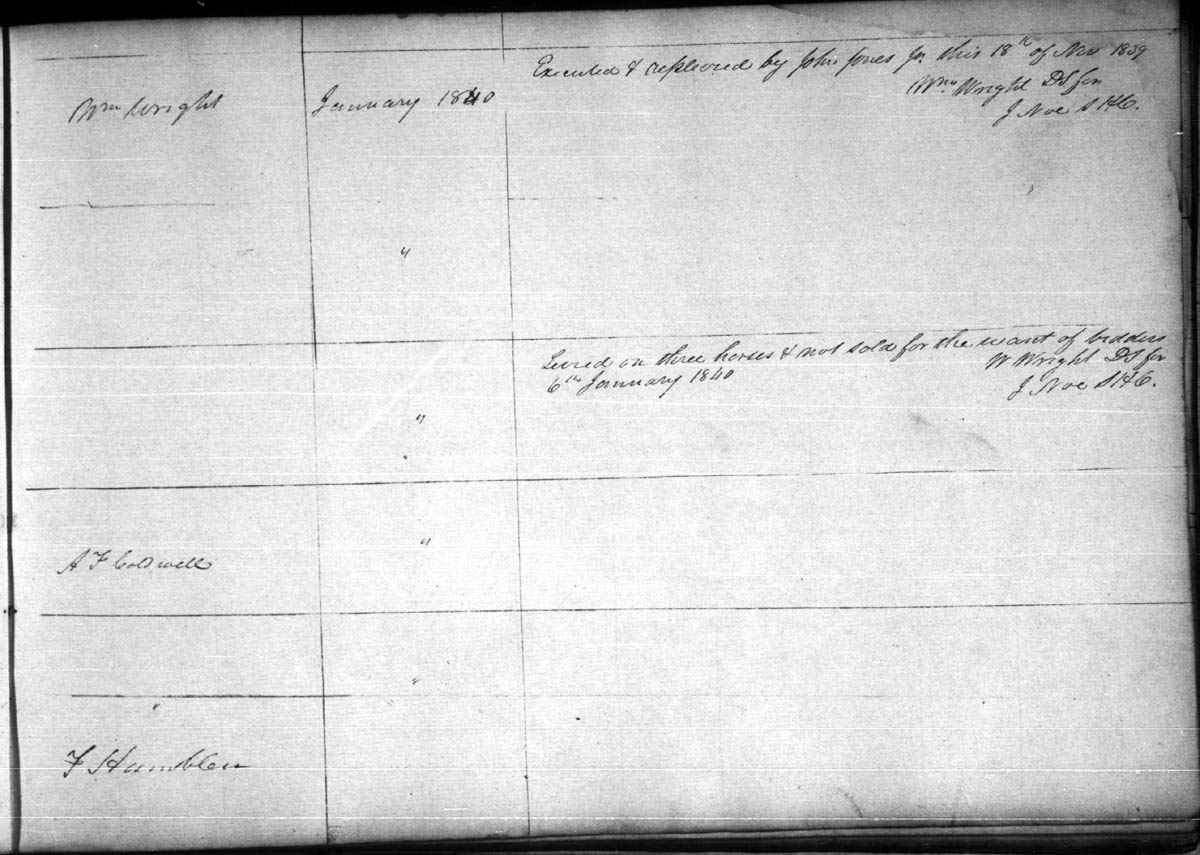 Executed & replevied by John Jones Jr. this 18th of Nov 1839
Wm Wright DS for
J Noe SHC.
Wm Wright
January 1840
"
Levied on three horses & not sold for the want of bidders
6th January 1840
W Wright DS for
J Noe SHC.
"
"
A F Coldwell
"
"
F Hamblen